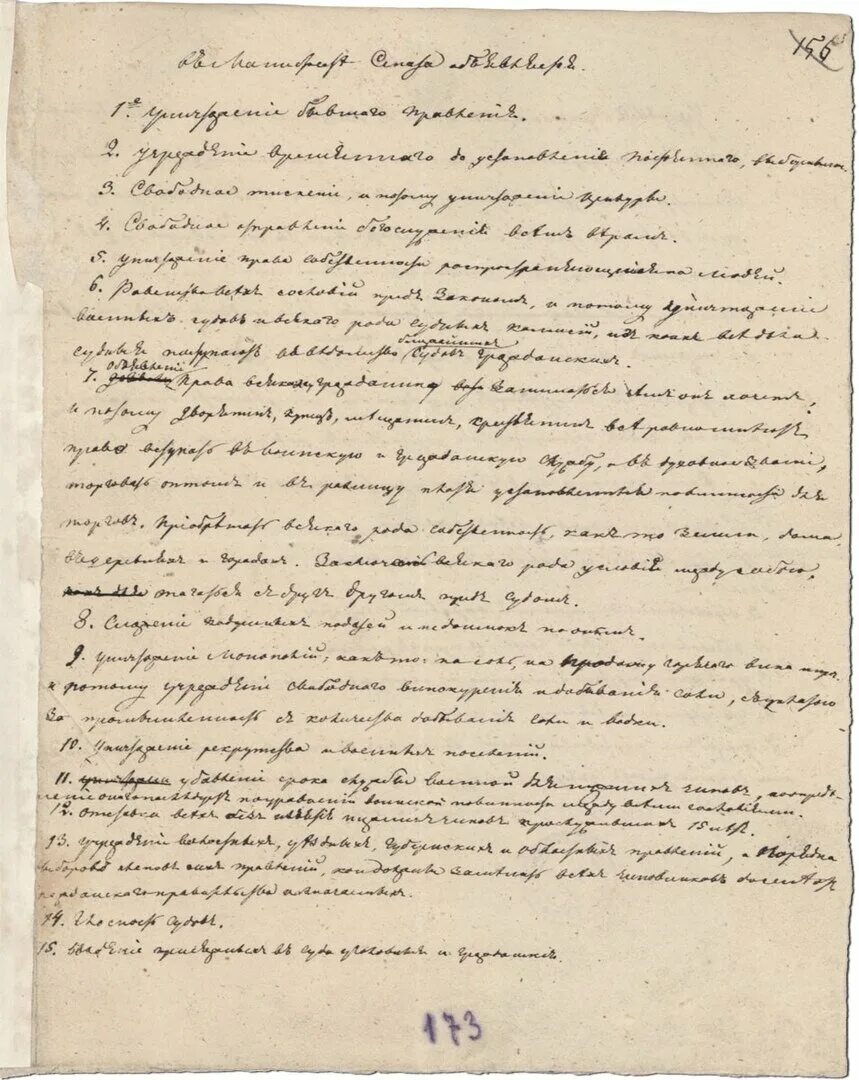 156
Въ Манифестѣ Сената объявляется.
1е. Уничтоженіе бывшаго Правленія.
2. Учрежденіе временнаго до установленія постояннаго, выборными.
3. Свободное тисненіе, и потому уничтоженіе цензуры.
4. Свободное отправленіе богослуженія всѣмъ вѣрамъ.
5. Уничтоженіе права собственности распространяющейся на людей.
6. Равенство всѣхъ сословій предъ Закономъ, и потому уничтоженіе
военныхъ судовъ и всякаго рода судныхъ комисій, изъ коихъ всѣ дѣла
ближайшихъ
судныя поступаютъ въ вѣдомство судовъ гражданскихъ.
объявленіе
7. права всякому гражданину заниматься чѣмъ онъ хочетъ,
и потому дворянинъ, купецъ, мѣщанинъ, крестьянинъ всѣ равно имѣютъ
право вступать въ воинскую и гражданскую службу, и въ духовное званіе,
торговать оптомъ и въ розницу платя установленныя повинности для
торговъ. Пріобрѣтать всякаго рода собственность, какъ то земли, дома
въ деревняхъ и городахъ. Заключать всякаго рода условія между собою,
тягаться съ другъ другомъ предъ судомъ.
8. Сложеніе подушныхъ податей и недоимокъ по онымъ.
9. Уничтоженіе монополій, какъ то: на соль, на продажу горячаго вина и проч.
и потому учрежденіе свободнаго винокуренія и добыванія соли, съ уплатою
за промышленность съ количества добыванія соли и водки.
10. Уничтоженіе рекрутства и военныхъ поселеній.
11. убавленіе срока службы военной для нижнихъ чиновъ, и опредѣ-
леніе онаго послѣдуетъ по уравненіи воинской повинности между всѣми сословіями.
12. Отставка всѣхъ безъ изъятія нижнихъ чиновъ прослужившихъ 15 лѣтъ.
13. Учрежденіе волостныхъ, уѣздныхъ, губернскихъ и областныхъ правленій, и порядка
выборовъ членовъ сихъ правленій, кои должны замѣнить всѣхъ чиновниковъ доселѣ отъ
гражданскаго правительства назначаемыхъ.
14. Гласность судовъ.
15. Введеніе присяжныхъ въ суды уголовныя и гражданскія.
173